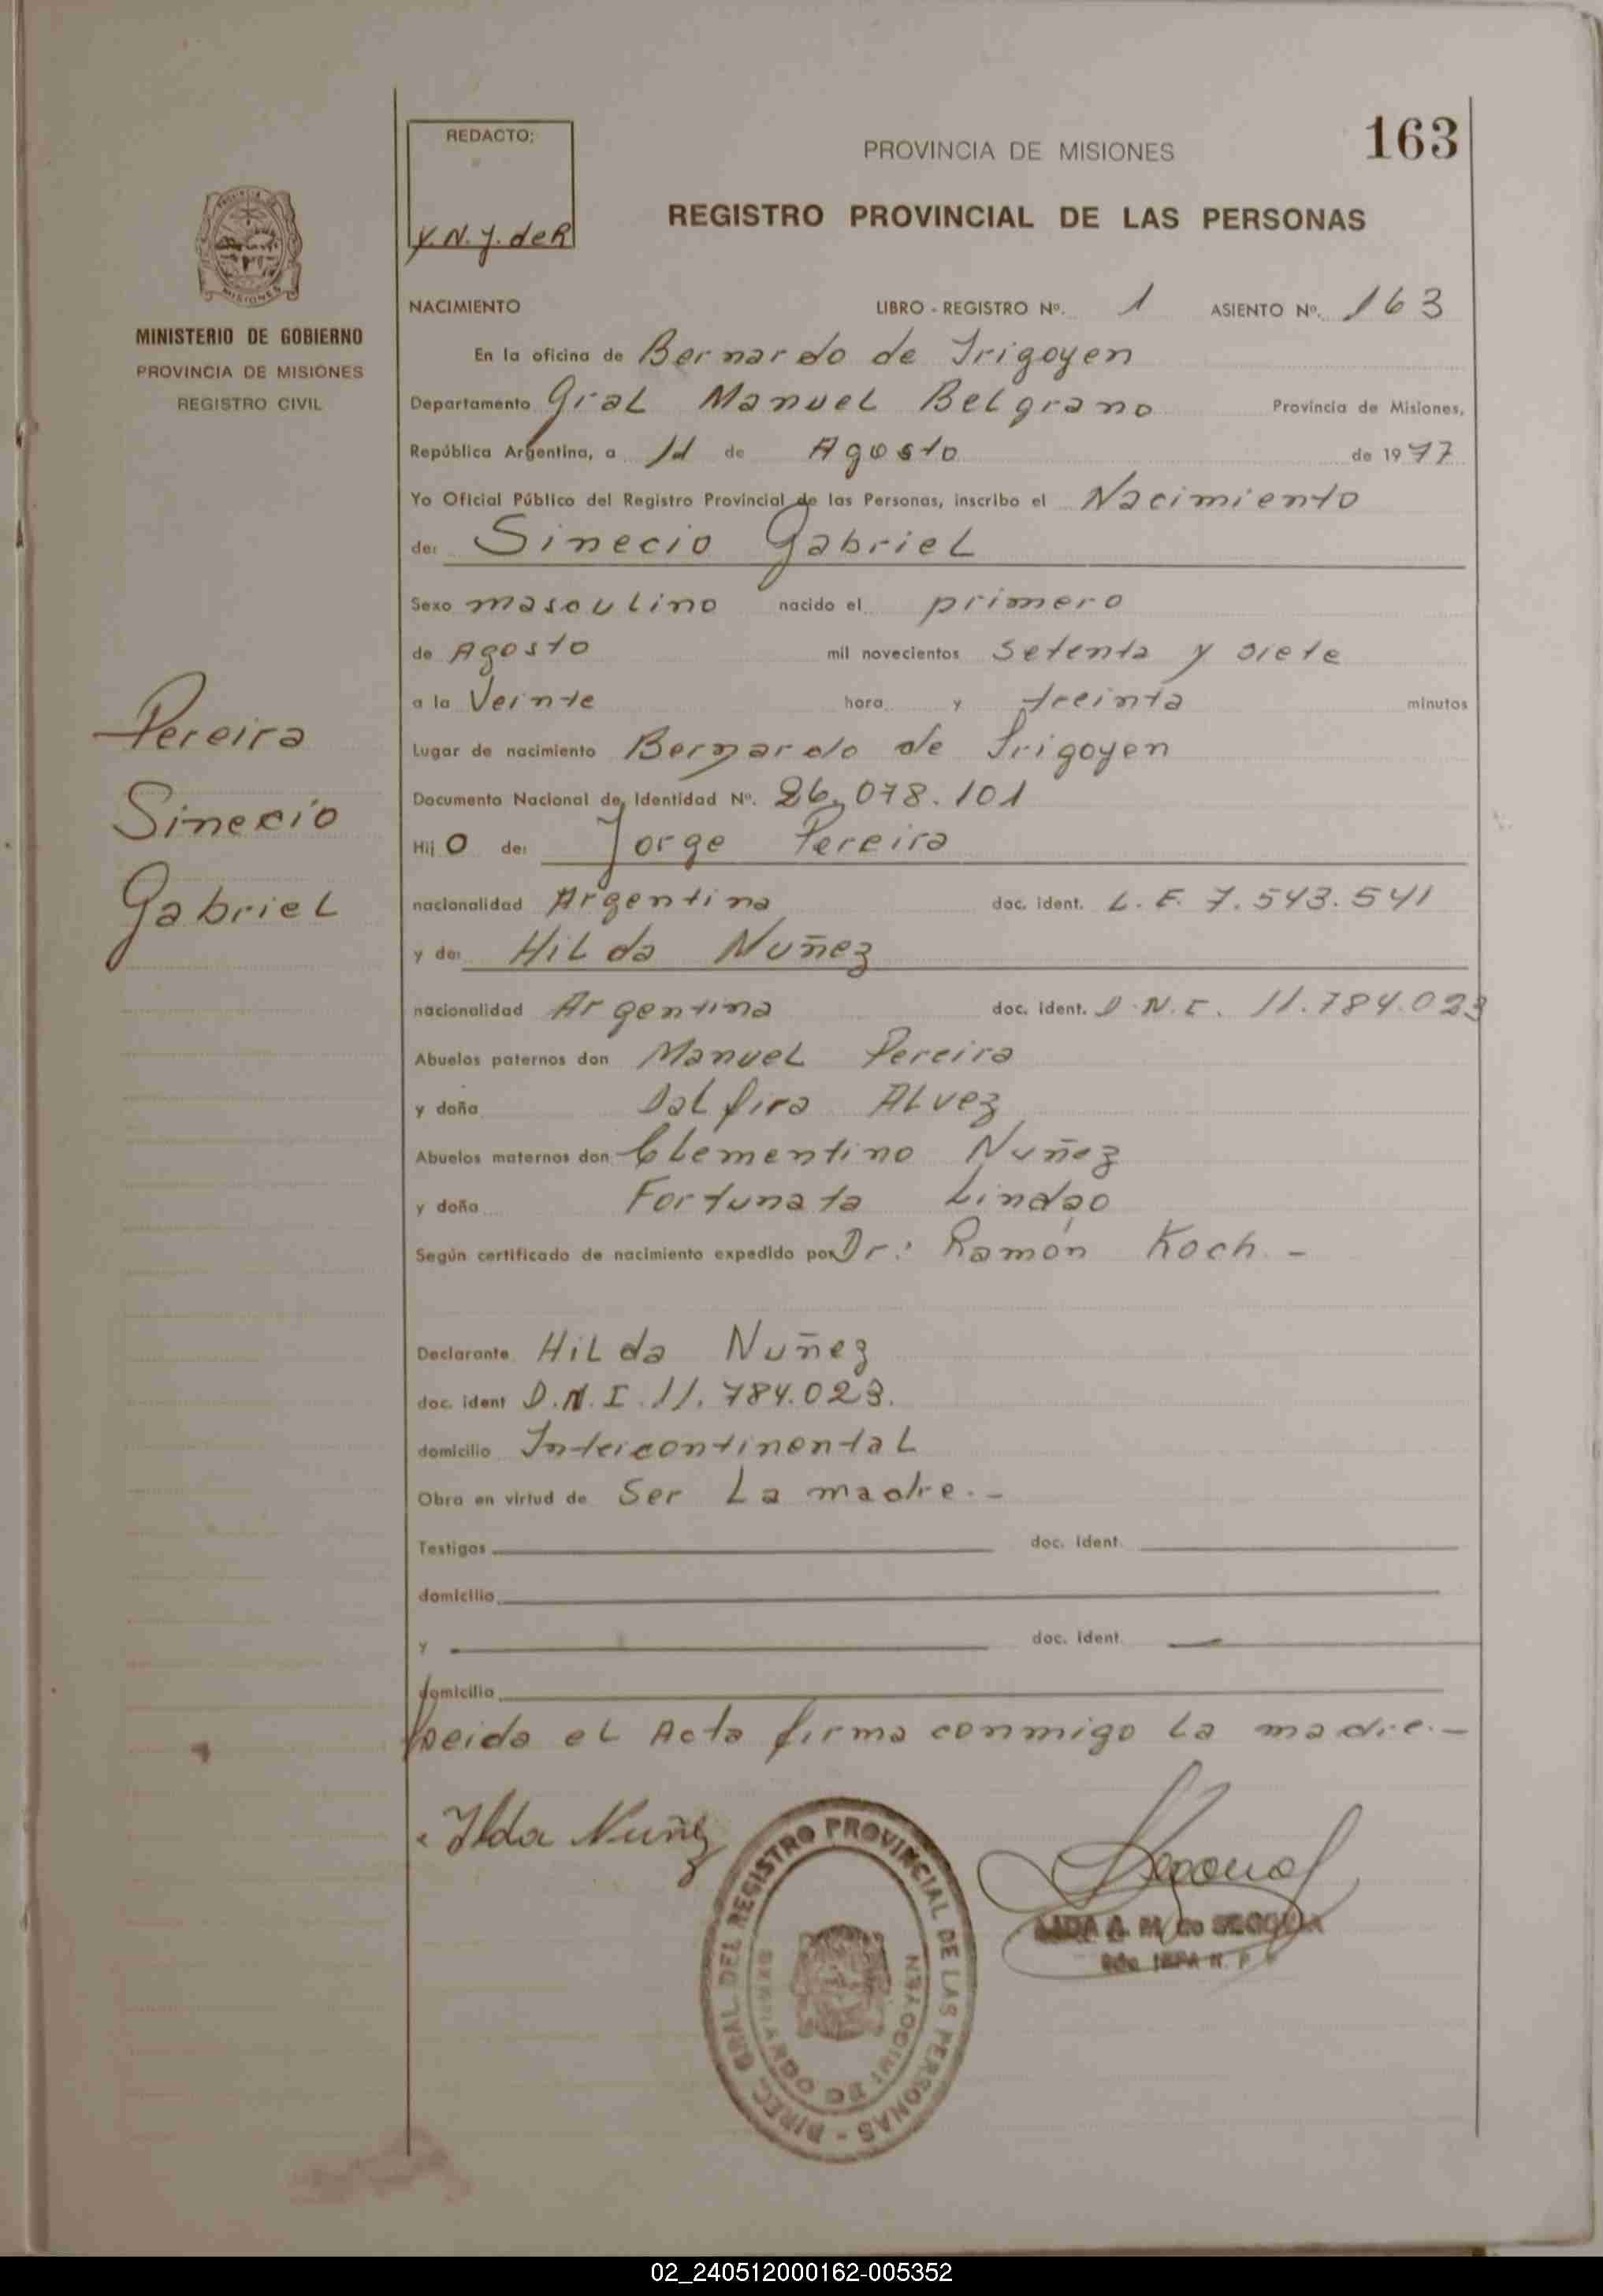 REDACTO:
Y. N. J. de R
PROVINCIA DE MISIONES
163
REGISTRO PROVINCIAL DE LAS PERSONAS
MISIONES
MINISTERIO DE GOBIERNO
PROVINCIA DE MISIONES
REGISTRO CIVIL
NACIMIENTO LIBRO - REGISTRO Nº. 1 ASIENTO Nº. 163
En la oficina de Bernardo de Irigoyen
Departamento Gral Manuel Belgrano Provincia de Misiones,
República Argentina, a 11 de Agosto de 1977
Yo Oficial Público del Registro Provincial de las Personas, inscribo el Nacimiento
de: Sinecio Gabriel
Sexo masculino nacido el primero
de Agosto mil novecientos setenta y siete
a la Veinte hora y treinta minutos
Lugar de nacimiento Bernardo de Irigoyen
Documento Nacional de Identidad Nº. 26.078.101
Hijo de: Jorge Pereira
nacionalidad Argentina doc. ident. L. E. 7.543.541
y de: Hilda Nuñez
nacionalidad Argentina doc. ident. D.N.I. 11.784.023
Abuelos paternos don Manuel Pereira
y doña Dalfira Alvez
Abuelos maternos don Clementino Nuñez
y doña Fortunata Lindao
Según certificado de nacimiento expedido por Dr: Ramón Koch -
Pereira
Sinecio
Gabriel
Declarante Hilda Nuñez
doc. ident D.N.I. 11.784.023.
domicilio Intercontinental
Obra en virtud de Ser La madre.-
Testigos doc. ident.
domicilio
y doc. ident.
domicilio
Leida el Acta firma conmigo la madre.-
Ilda Nuñez
DIREC. GRAL. DEL REGISTRO PROVINCIAL DE LAS PERSONAS -
BERNARDO DE IRIGOYEN
de SEGOVIA
02_240512000162-005352